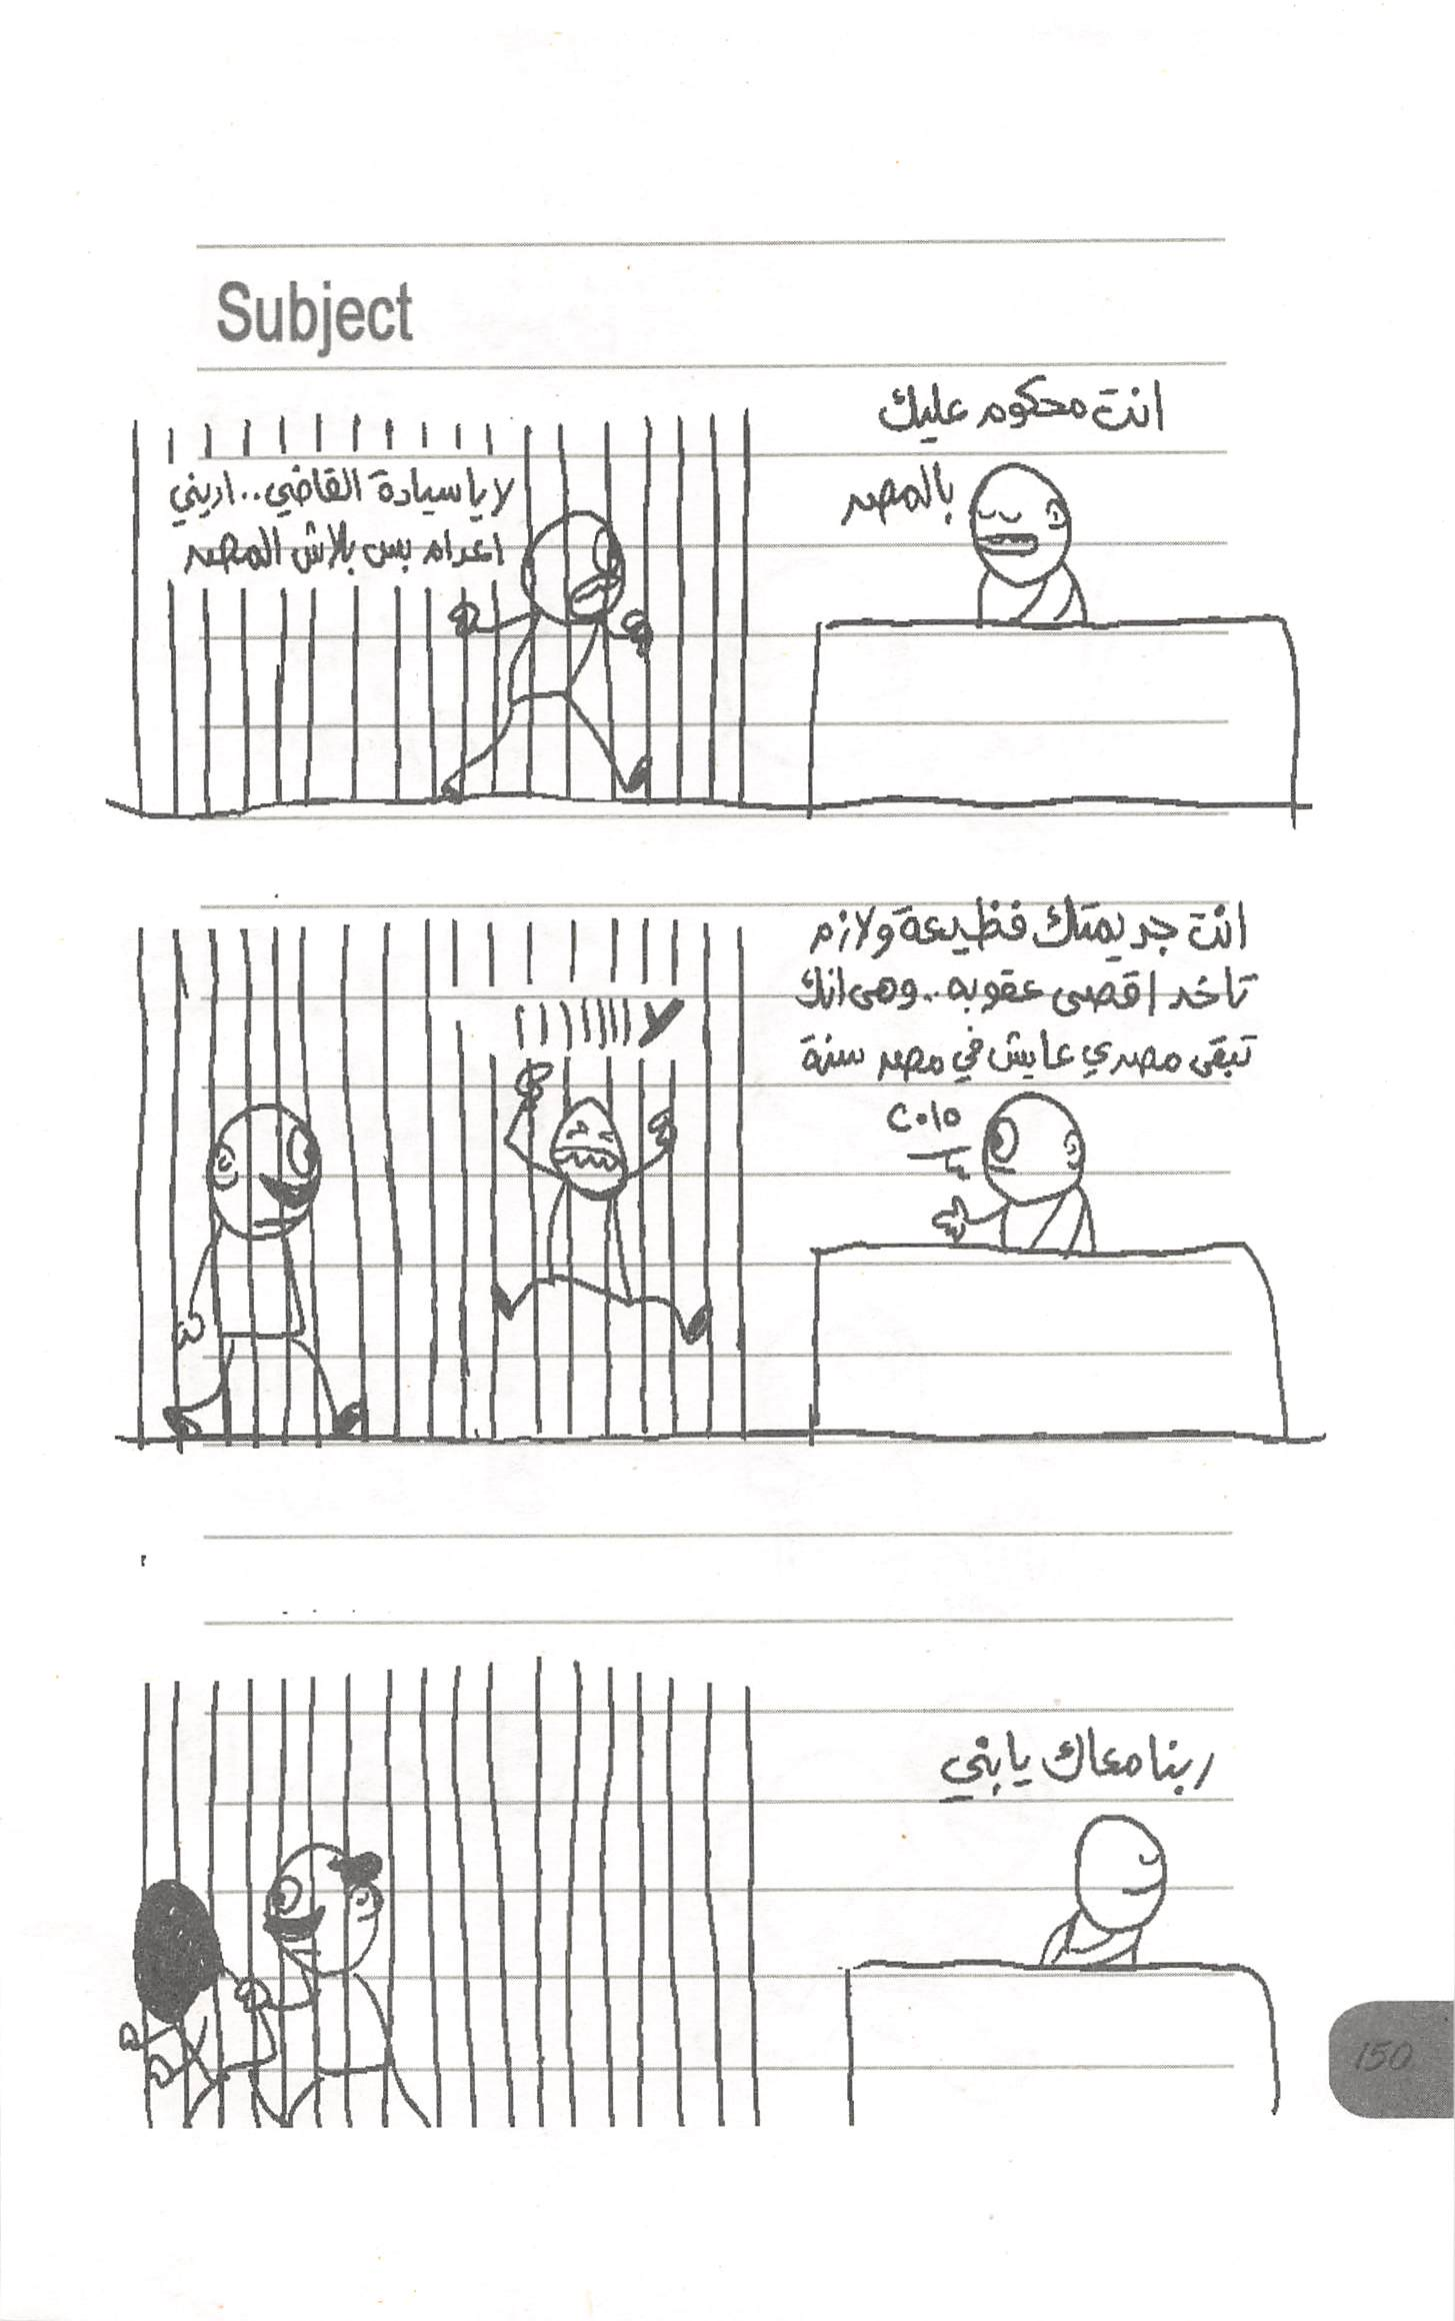 Subject
انت محكوم عليك
بالمصر
لا يا سيادة القاضي.. اديني
اعدام بس بلاش المصر
انت جريمتك فظيعة ولازم
تاخد اقصى عقوبه.. وهى انك
تبقى مصري عايش في مصر سنة
٢٠١٥
لا ااااااا
ربنا معاك يا بني
150